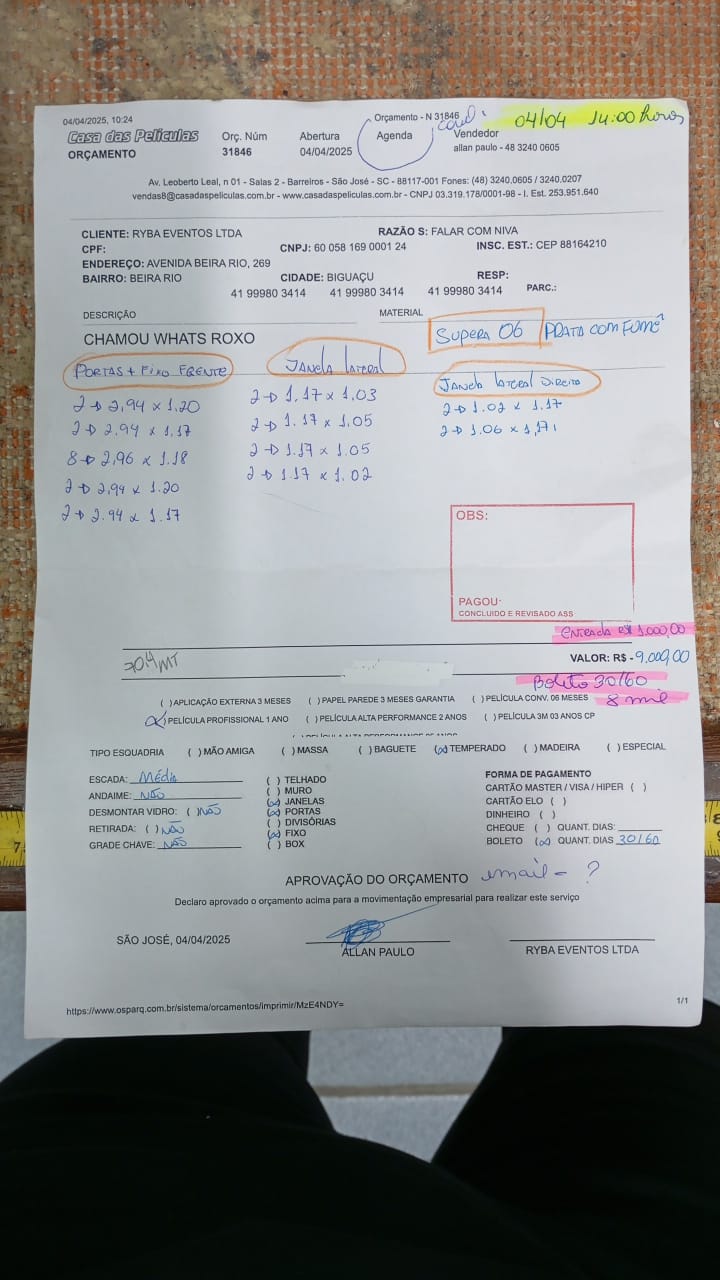 04/04/2025, 10:24
Orçamento - N 31846
04/04 14:00 horas
Casa das Películas
ORÇAMENTO
Orç. Núm
31846
Abertura
04/04/2025
Agenda
Vendedor
allan paulo - 48 3240 0605
Av. Leoberto Leal, n 01 - Salas 2 - Barreiros - São José - SC - 88117-001 Fones: (48) 3240.0605 / 3240.0207
vendas8@casadaspeliculas.com.br - www.casadaspeliculas.com.br - CNPJ 03.319.178/0001-98 - I. Est. 253.951.640
CLIENTE: RYBA EVENTOS LTDA RAZÃO S: FALAR COM NIVA
CPF: CNPJ: 60 058 169 0001 24 INSC. EST.: CEP 88164210
ENDEREÇO: AVENIDA BEIRA RIO, 269
BAIRRO: BEIRA RIO CIDADE: BIGUAÇU RESP:
41 99980 3414 41 99980 3414 41 99980 3414 PARC.:
DESCRIÇÃO MATERIAL
CHAMOU WHATS ROXO
SUPERA 06 PRATA COM FUMÊ
PORTAS + FIXO FRENTE
2 → 2,94 x 1.20
2 → 2,94 x 1,17
8 → 2,96 x 1.18
2 → 2,94 x 1.20
2 → 2.94 x 1.17
JANELA LATERAL
2 → 1.17 x 1.03
2 → 1.17 x 1.05
2 → 1.17 x 1.05
2 → 1.17 x 1.02
JANELA LATERAL DIREITO
2 → 1.02 x 1.17
2 → 1.06 x 1,17
OBS:
PAGOU:
CONCLUIDO E REVISADO ASS
ENTRADA R$ 1.000,00
70,4 MT
VALOR: R$ - 9.000,00
Boleto 30/60
8 mil
( ) APLICAÇÃO EXTERNA 3 MESES ( ) PAPEL PAREDE 3 MESES GARANTIA ( ) PELÍCULA CONV. 06 MESES
(x) PELÍCULA PROFISSIONAL 1 ANO ( ) PELÍCULA ALTA PERFORMANCE 2 ANOS ( ) PELÍCULA 3M 03 ANOS CP
TIPO ESQUADRIA ( ) MÃO AMIGA ( ) MASSA ( ) BAGUETE (x) TEMPERADO ( ) MADEIRA ( ) ESPECIAL
ESCADA: Média
ANDAIME: NÃO
DESMONTAR VIDRO: ( ) NÃO
RETIRADA: ( ) NÃO
GRADE CHAVE: NÃO
( ) TELHADO
( ) MURO
(x) JANELAS
(x) PORTAS
( ) DIVISÓRIAS
(x) FIXO
( ) BOX
FORMA DE PAGAMENTO
CARTÃO MASTER / VISA / HIPER ( )
CARTÃO ELO ( )
DINHEIRO ( )
CHEQUE ( ) QUANT. DIAS:
BOLETO (x) QUANT. DIAS 30/60
APROVAÇÃO DO ORÇAMENTO email - ?
Declaro aprovado o orçamento acima para a movimentação empresarial para realizar este serviço
SÃO JOSÉ, 04/04/2025
ALLAN PAULO
RYBA EVENTOS LTDA
https://www.osparq.com.br/sistema/orcamentos/imprimir/MzE4NDY=
1/1
7
8